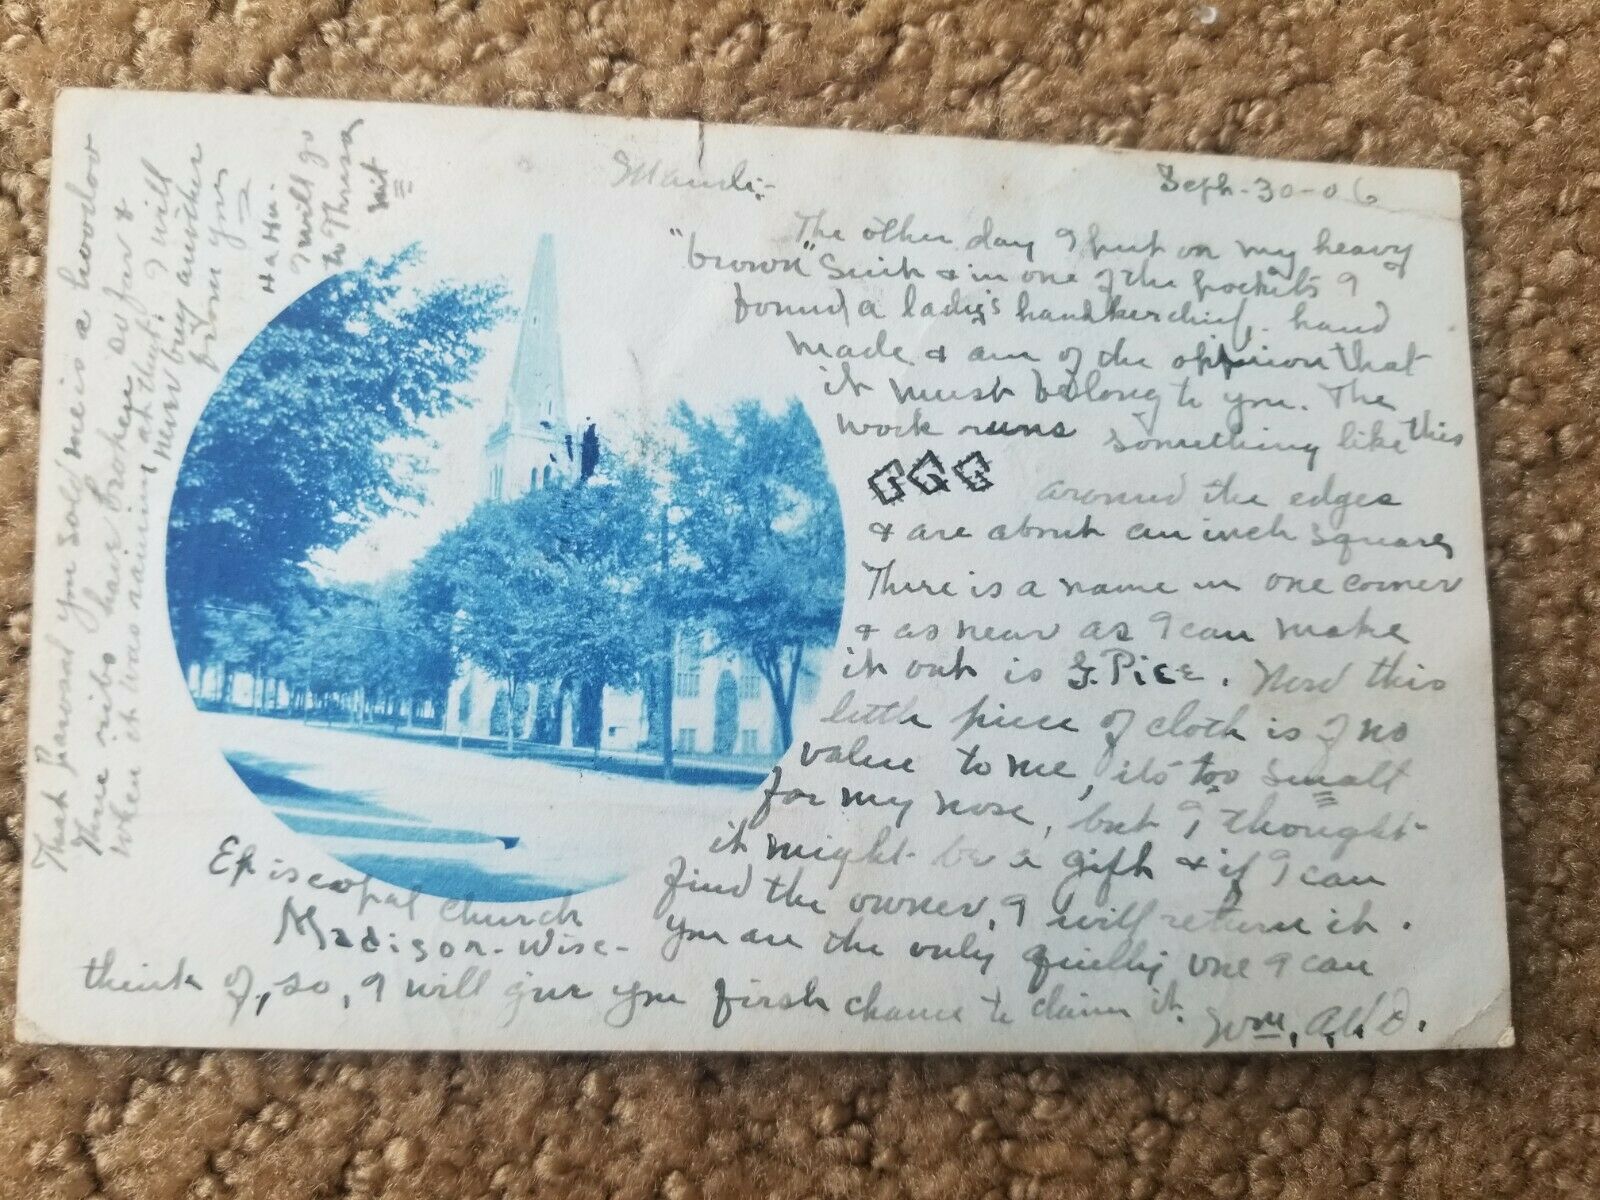 Sept-30-06
Maud:-
The other day I put on my heavy
"brown" Suit & in one of the pockets I
found a ladies handkerchief, hand
made & am of the opinion that
it must belong to you. The
work runs something like this
around the edges
& are about an inch square,
There is a name in one corner
& as near as I can make
it out is G. Pice. Now this
little piece of cloth is of no
value to me, its too small
for my nose, but I thought
it might be a gift & if I can
find the owner, I will return it.
You are the only guilty one I can
think of, so, I will give you first chance to claim it.
Wm, A.
Episcopal Church
Madison-Wisc-
That parasol you sold me is a hoodoo
Three ribs have broken so far &
when it was raining at that. I will
never buy another
from you
Ha Ha.
I will go
to Thresa